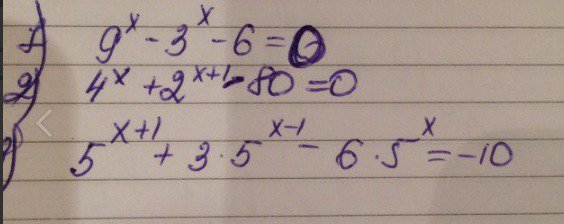 1) 9^x - 3^x - 6 = 0
2) 4^x + 2^{x+1} - 80 = 0
5^{x+1} + 3 · 5^{x-1} - 6 · 5^x = -10